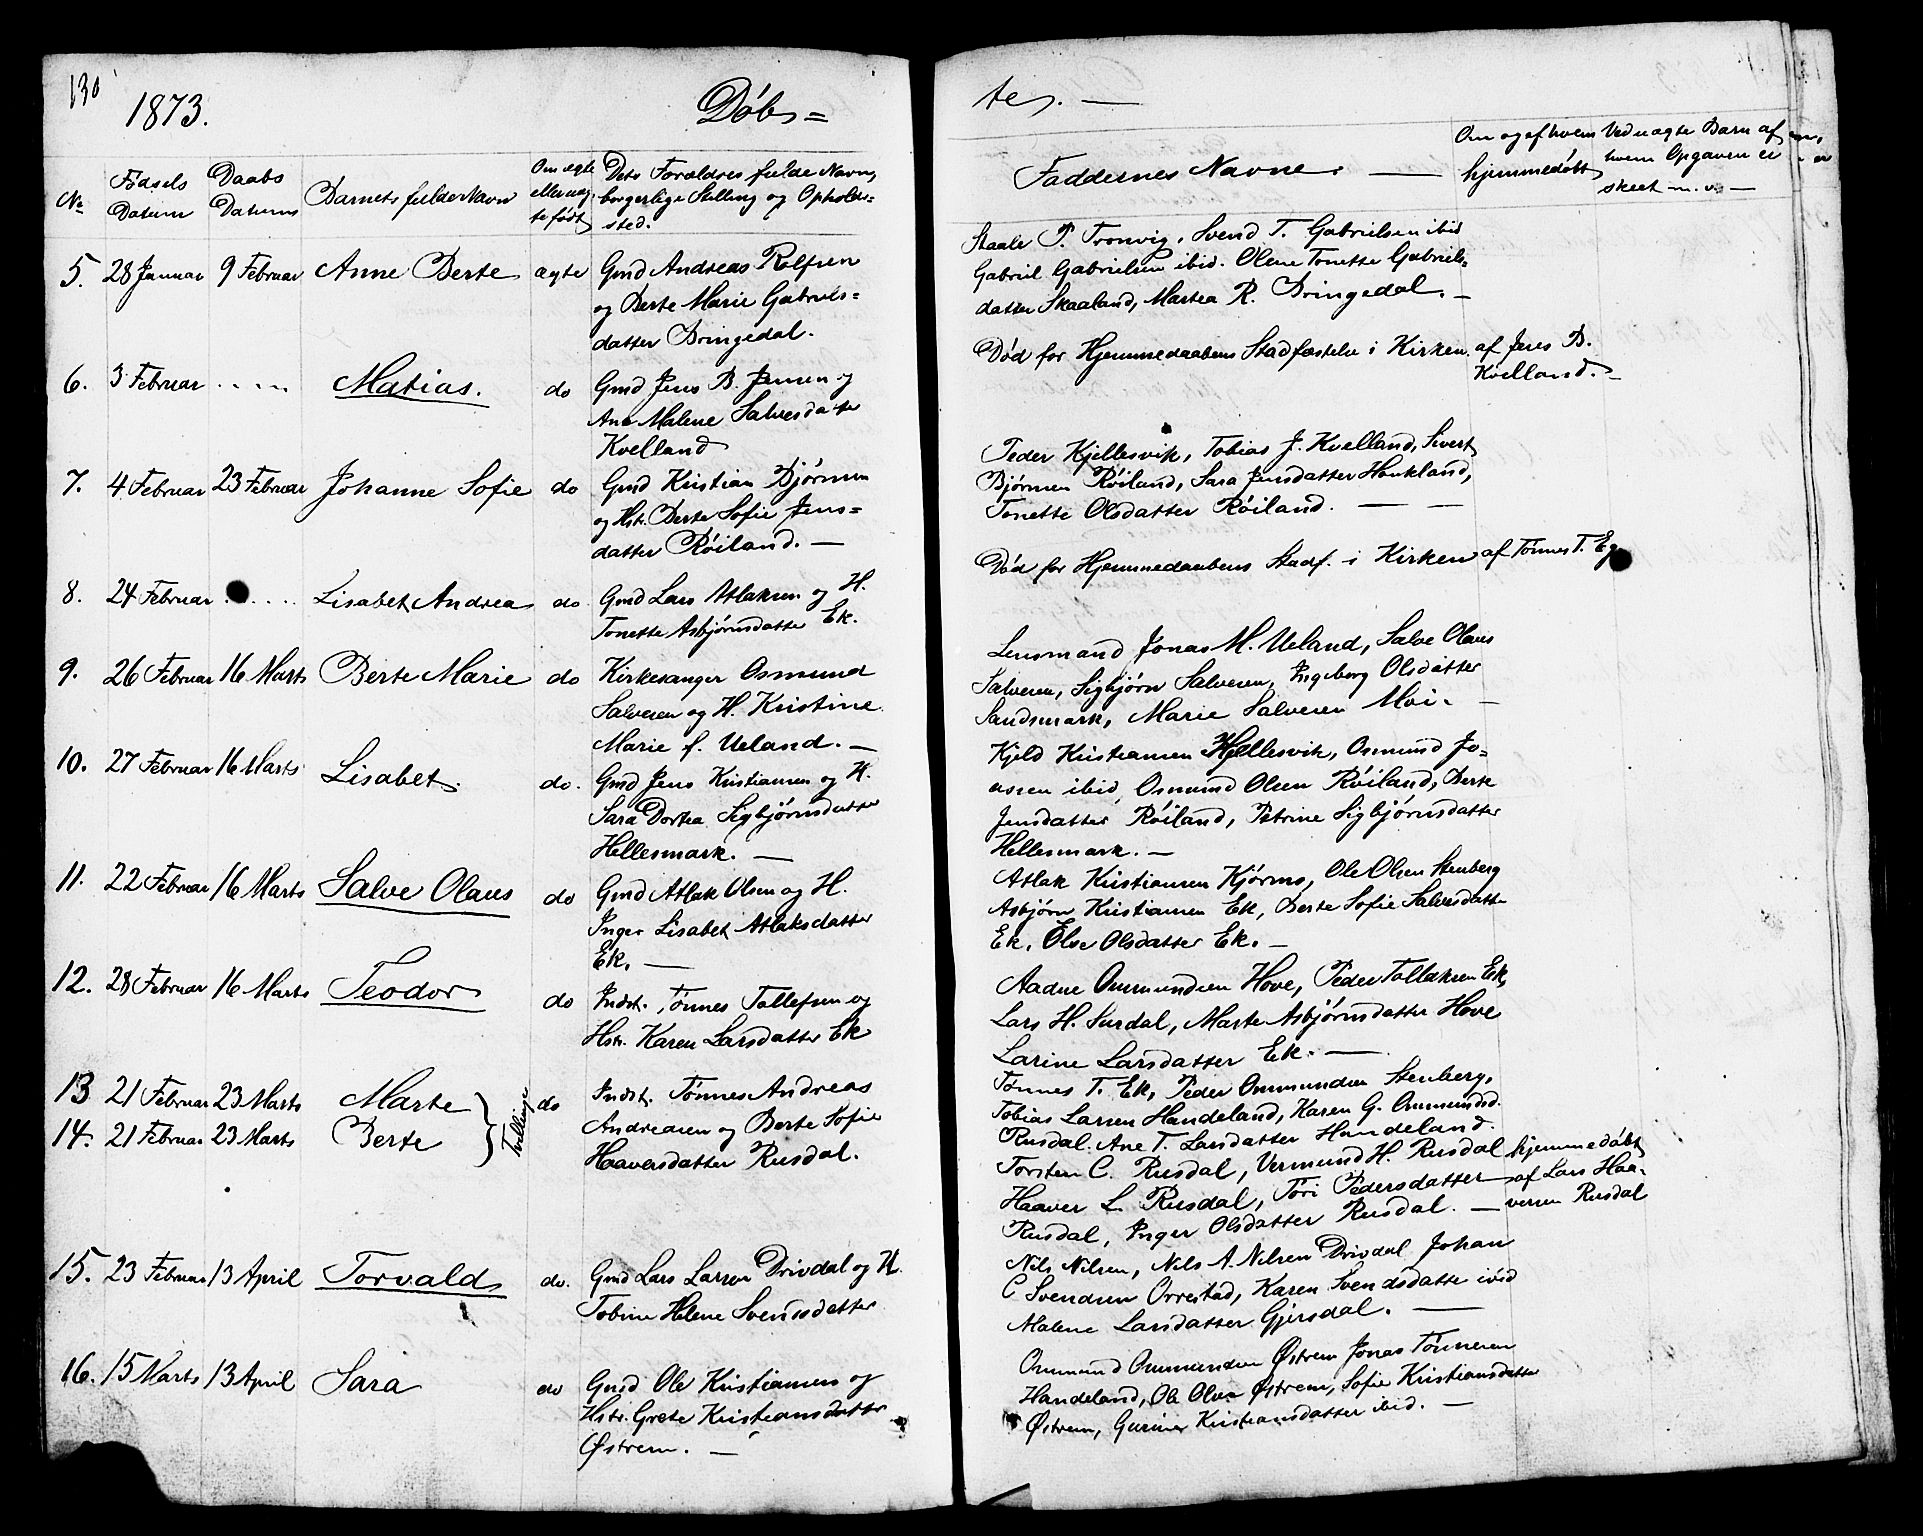 130
1873.
Døbs=
tes. —
No
Fødsels Datum
Daabs Datums
Barnets fulde Navn
Om ægte eller uæg- te født
Dets Forældres fulde Navn, borgerlige Stilling og Opholds= sted.
Faddernes Navne. —
Om og af hvem hjemmedøbt
Ved uægte Barn af hvem Opgaven er skeet m. v. —
5. 28 Januar 9 Februar Anne Berte ægte Gmd Andreas Rolfsen
og Berte Marie Gabriels=
datter Bringedal.
Staale P. Tronvig, Svend T. Gabrielsen ibid
Gabriel Gabrielsen ibid. Olene Tonette Gabriels=
datter Skaaland, Martea R. Bringedal. —
6. 3 Februar . . . . . Matias. do Gmd Jens B. Jensen og
Ane Malene Salvesdatter
Kvelland
Død før Hjemmedaabens Stadfæstelse i Kirken. af Jens B.
Kvelland. —
7. 4 Februar 23 Februar Johanne Sofie do Gmd Kristian Bjørnsen
og Hstr. Berte Sofie Jens=
datter Röiland. —
Peder Kjellesvik, Tobias J. Kvelland, Sivert
Bjørnsen Röiland, Sara Jensdatter Haukland,
Tonette Olsdatter Röiland. — —
8. 24 Februar . . . . . Lisabet Andrea do Gmd Lars Atlaksen og H.
Tonette Asbjørnsdatter Ek.
Död før Hjemmedaabens Stadf. i Kirken af Tönnes T. Eg
9. 26 Februar 16 Marts Berte Marie do Kirkesanger Osmund
Salvesen og H. Kristine
Marie f. Ueland. —
Lensmand Jonas M. Ueland, Salve Olaus
Salvesen, Sigbjørn Salvesen, Ingeborg Olsdatter
Sandsmark, Marie Salvesen Moi. —
10. 27 Februar 16 Marts Lisabet. do. Gmd Jens Kristiansen og H.
Sara Dortea Sigbjørnsdatter
Hellesmark. —
Kjeld Kristiansen Hellesvik, Osmund Jo=
nsen ibid, Osmund Olsen Röiland, Berte
Jensdatter Röiland, Petrine Sigbjørnsdatter
Hellesmark. —
11. 22 Februar 16 Marts Salve Olaus do Gmd Atlak Olsen og H.
Inger Lisabet Atlaksdatter
Ek. —
Atlak Kristiansen Kjørmo, Ole Olsen Stenberg
Asbjørn Kristiansen Ek, Berte Sofie Salvesdatter
Ek. Elve Olsdatter Ek. —
12. 28 Februar 16 Marts Teodor do Indst. Tönnes Tollefsen og
Hstr. Karen Larsdatter Ek
Aadne Ommundsen Hove, Peder Tollaksen Ek,
Lars H. Surdal, Marte Asbjørnsdatter Hove
Larine Larsdatter Ek. —
13 21 Februar 23 Marts Marte do Indst. Tönnes Andreas
14. 21 Februar 23 Marts Berte Andreasen og Berte Sofie
Haaversdatter Rusdal.
Tvillinge
Tönnes T. Ek, Peder Ommundsen Stenberg,
Tobias Larsen Handeland, Karen G. Ommundsd.
Rusdal. Ane T. Larsdatter Handeland.
Torsten C. Rusdal, Vermund H. Rusdal hjemmedøbt
Haaver L. Rusdal, Töri Pedersdatter af Lars Haa-
Rusdal, Inger Olsdatter Rusdal. — versen Rusdal
15. 23 Februar 13 April Torvald do. Gmd Lars Larsen Drivdal og H.
Tobine Helene Svendsdatter
Nils Nilsen, Nils A. Nilsen Drivdal Johan
C Svendsen Orrestad, Karen Svendsdatter ibid
Malene Larsdatter Gjersdal. —
16. 15 Marts 13 April Sara do Gmd Ole Kristiansen og
Hstr. Grete Kristiansdatter
Østrem. —
Ommund Ommundsen Østrem Jonas Tönnesen
Handeland, Ole Olsen Østrem, Sofie Kristiansdatter
Østrem, Gurine Kristiansdatter ibid. —